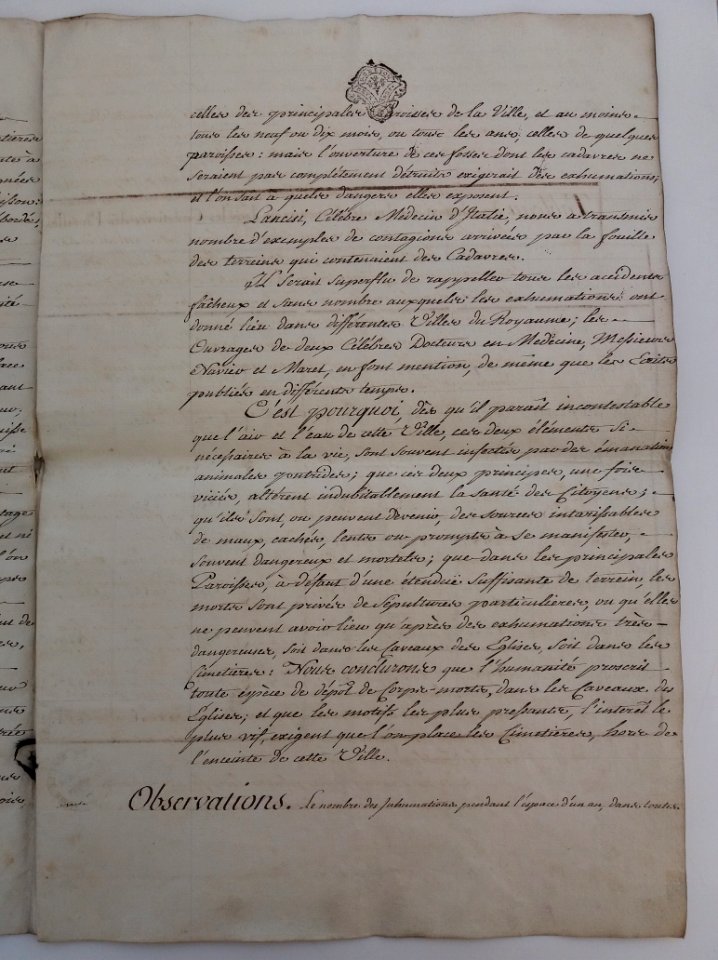 celles des principales Paroisses de la Ville, et au moins
tous les neuf ou dix mois, ou tous les ans, celles de quelques
paroisses: mais l'ouverture de ces fosses dont les cadavres ne
seraient pas complétement détruits exigerait des exhumations;
et l'on sait à quels dangers elles exposent.
Lancisi, Célébre Médecin d'Italie, nous a transmis
nombre d'exemples de contagions arrivées par la fouille
des terreins qui contenaient des Cadavres.
Il serait superflu de rappeller tous les accidents
fâcheux et sans nombre auxquels les exhumations ont
donné lieu dans différentes Villes du Royaume; les
Ouvrages de deux Célébres Docteurs en Médecine, Messieurs
Navier et Maret, en font mention, de même que les Ecrits
publiés en différents temps.
C'est pourquoi, dès qu'il parait incontestable
que l'air et l'eau de cette Ville, ces deux éléments si
nécessaires à la vie, sont souvent infectés par des émanations
animales putrides; que ces deux principes, une fois
viciés, altérent indubitablement la santé des Citoyens;
qu'ils sont, ou peuvent devenir, des sources intarissables
de maux, cachés, lents ou prompts à se manifester,
souvent dangereux et mortels; que dans les principales
Paroisses, à défaut d'une étendüe suffisante de terrein, les
morts sont privés de sépultures particulieres, ou qu'elles
ne peuvent avoir lieu qu'après des exhumations très-
dangereuses, soit dans les Caveaux des Eglises, soit dans les
Cimetières: Nous conclurons que l'humanité proscrit
toute espèce de dépôt de Corps-morts, dans les Caveaux des
Eglises; et que les motifs les plus pressants, l'interêt le
plus vif, exigent que l'on place les Cimetières, hors de
l'enceinte de cette Ville.
Observations. Le nombre des Inhumations, pendant l'espace d'un an, dans toutes